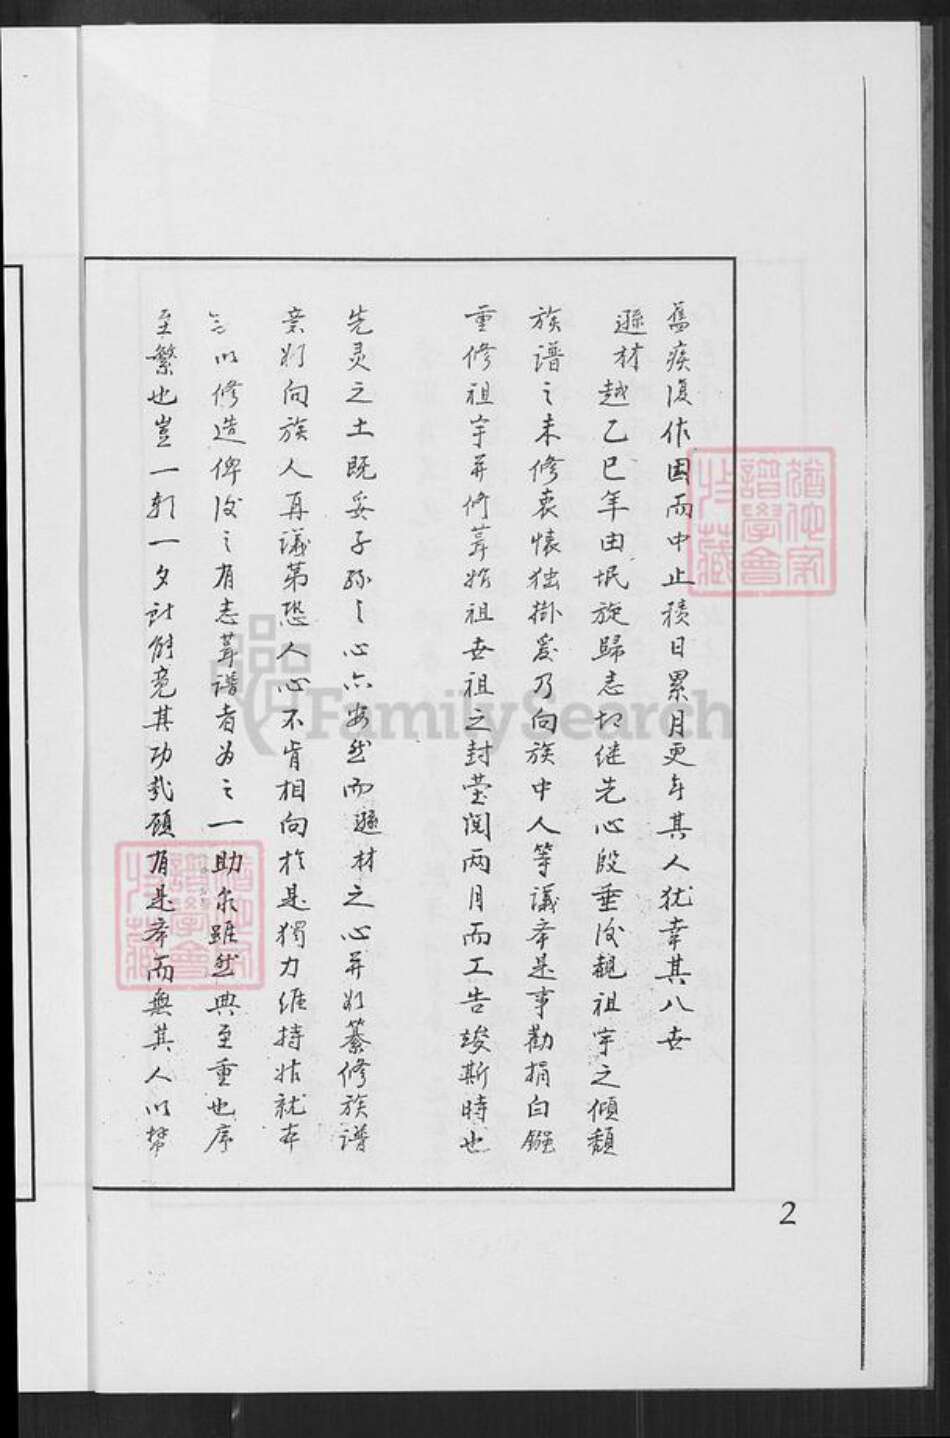 舊疾復作因而中止積日累月更年其人犹幸其八世
遜材越乙巳年由垊旋歸志切继先心殷垂後觀祖宇之傾頹
族谱之未修衷懐独掛爰乃向族中人等議举是事勸捐白鏹
重修祖宇并修葺始祖世祖之封塋閱两月而工告竣斯時也
先灵之土既妥子孫之心亦安然而遜材之心并欲纂修族譜
亲欲向族人再議第恐人心不肯相向於是獨力维持姑就本
以修造俾後之有志葺谱者为之一助尔雖然典至重也序
至繁也豈一朝一夕計能竟其功哉願有是举而無其人以帮
猶他家譜學會特藏
猶他家譜學會特藏
FamilySearch
2